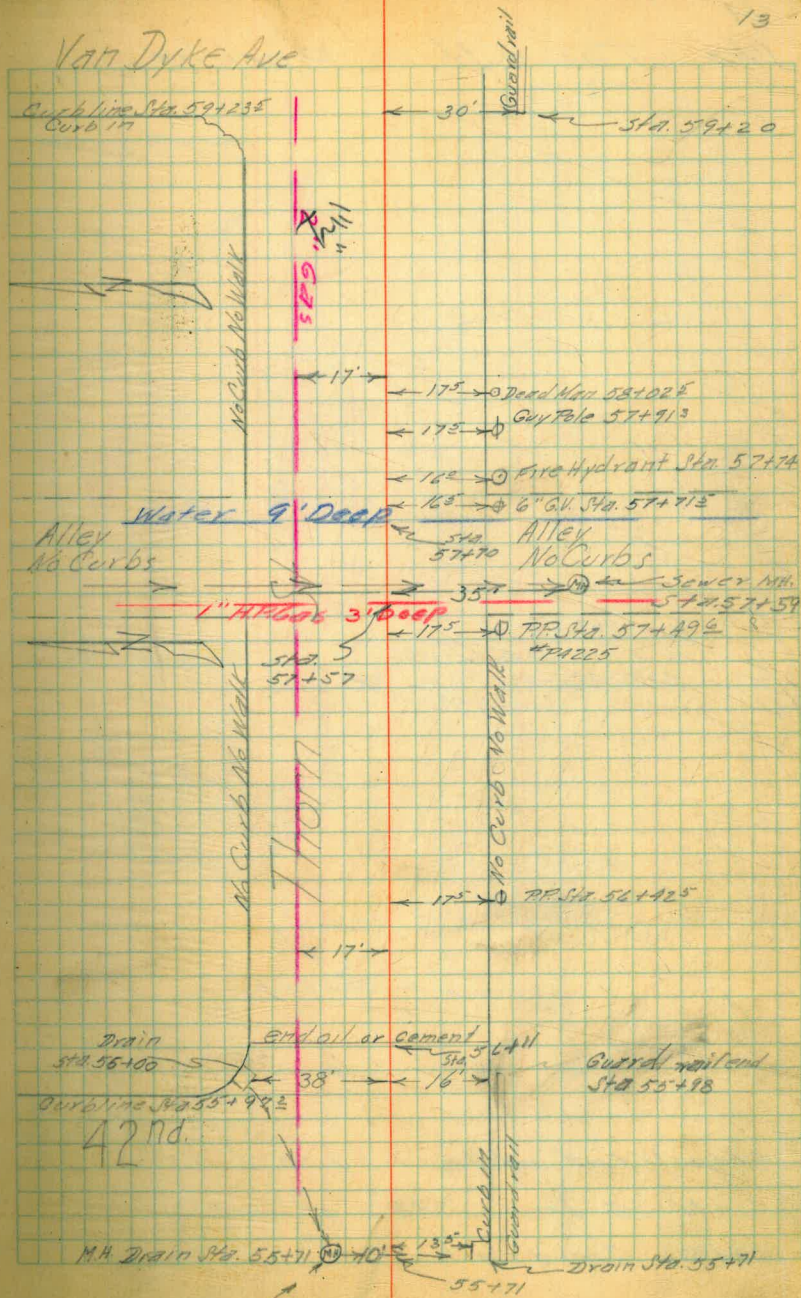 13
Van Dyke Ave
Guardrail
Curb line Sta. 59+23⁵
Curb in
30'
Sta. 59+20
2" Gas
1½"
No Curb No Walk
17'
17⁵
Dead Man 58+02⁵
17⁵
Guy Pole 57+91³
Fire Hydrant Sta. 57+74
16⁵
6" G.V. Sta. 57+71⁵
Water 9' Deep
Sta. 57+70
Alley
No Curbs
Alley
No Curbs
35'
MH
Sewer MH.
Sta. 57+59
1" H.P. Gas 3' Deep
17⁵
P.P. Sta. 57+49⁶
#P4225
Sta.
57+57
No Curb No Walk
No Curb No Walk
Thorn
17⁵
P.P. Sta. 56+42⁵
17'
End oil or cement
Sta. 56+11
Drain
Sta. 56+00
38'
16'
Guard rail end
Sta 55+98
Curb line Sta 55+97²
42nd.
Curb in
Guard rail
M.H. Drain Sta. 55+71
MH
10'
13⁵
Drain Sta. 55+71
55+71